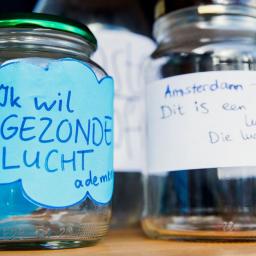 Ik wil
GEZONDE
LUCHT
ademen
Amsterdam -
Dit is een
Lu
Die lu